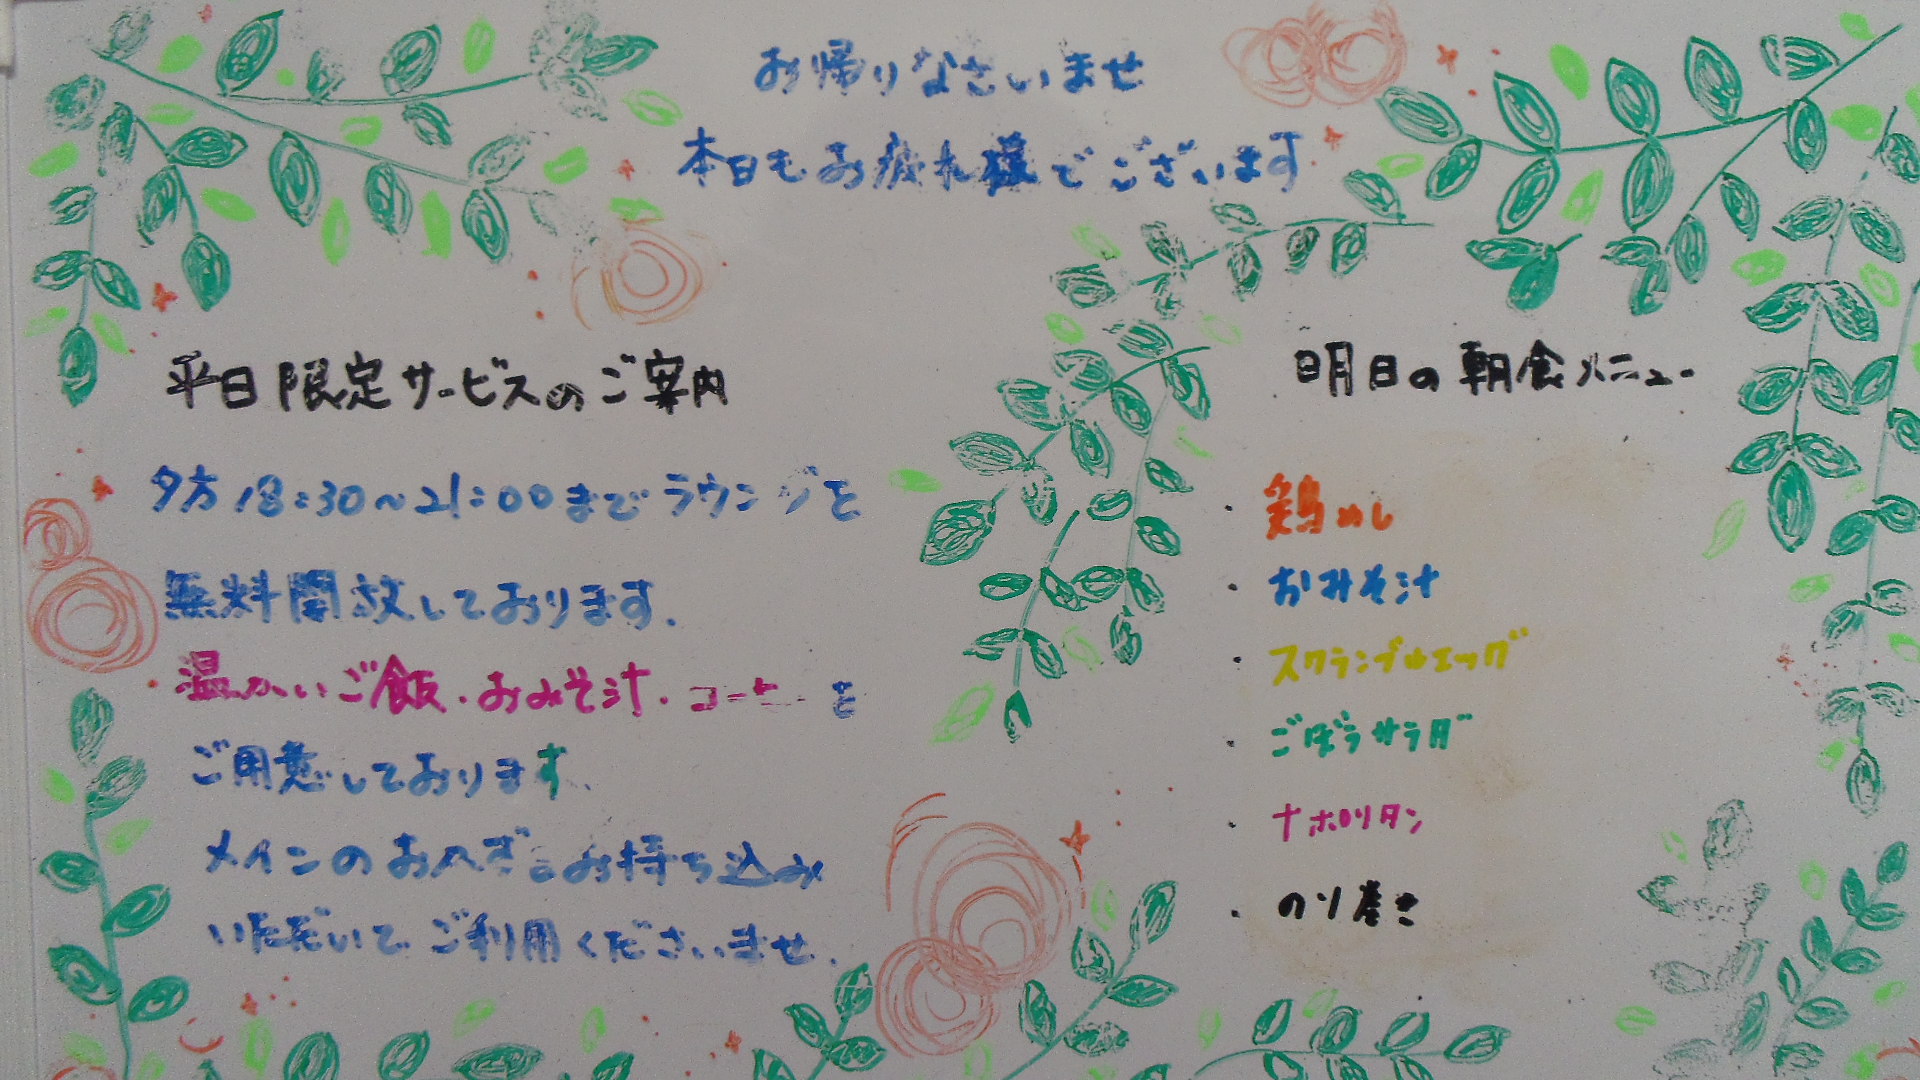 お帰りなさいませ
本日もお疲れ様でございます
平日限定サービスのご案内
夕方18:30〜21:00までラウンジを
無料開放しております。
温かいご飯・おみそ汁・コーヒーを
ご用意しております。
メインのおかずをお持ち込み
いただいてご利用くださいませ。
明日の朝食メニュー
・鶏めし
・おみそ汁
・スクランブルエッグ
・ごぼうサラダ
・ナポリタン
・のり巻き